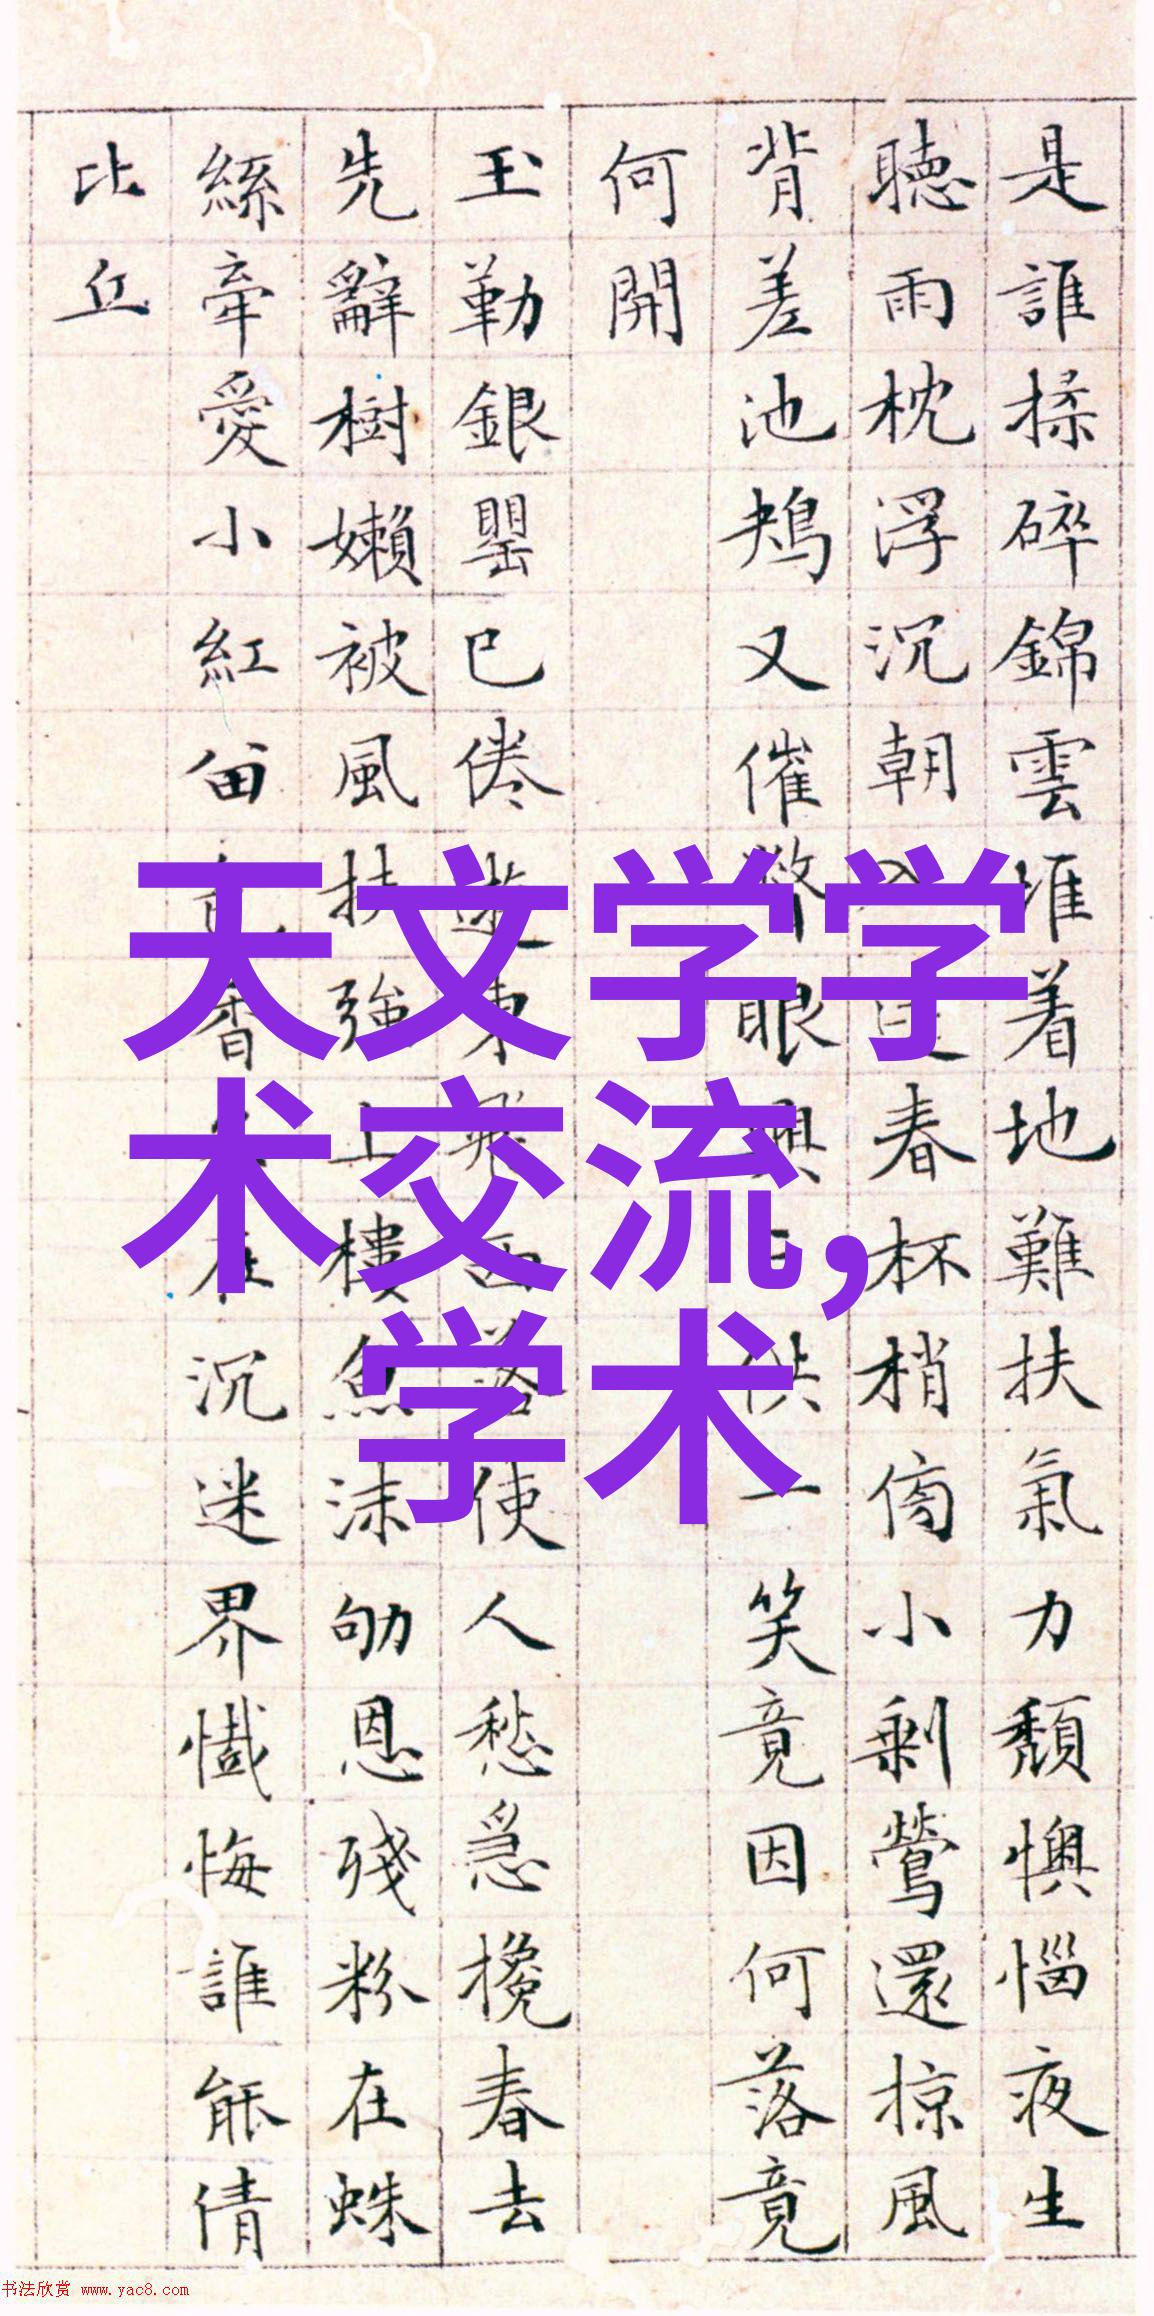 是誰揉碎錦雲堆着地難扶氣力頹懊惱夜生
聽雨枕浮沉朝春杯梢傍小剩鶯還掠風
背差池鴂又催眼供一笑竟因何落竟
何開
玉勒銀罌已倦遊東飛西落使人愁急攙春去
先辭樹嬾被風扶強上樓魚沫劬恩殘粉在蛛
絲牽愛小紅留香在沉迷界懺悔誰能倩
比丘
天文学学
术交流，
学术
书法欣赏 www.yac8.com